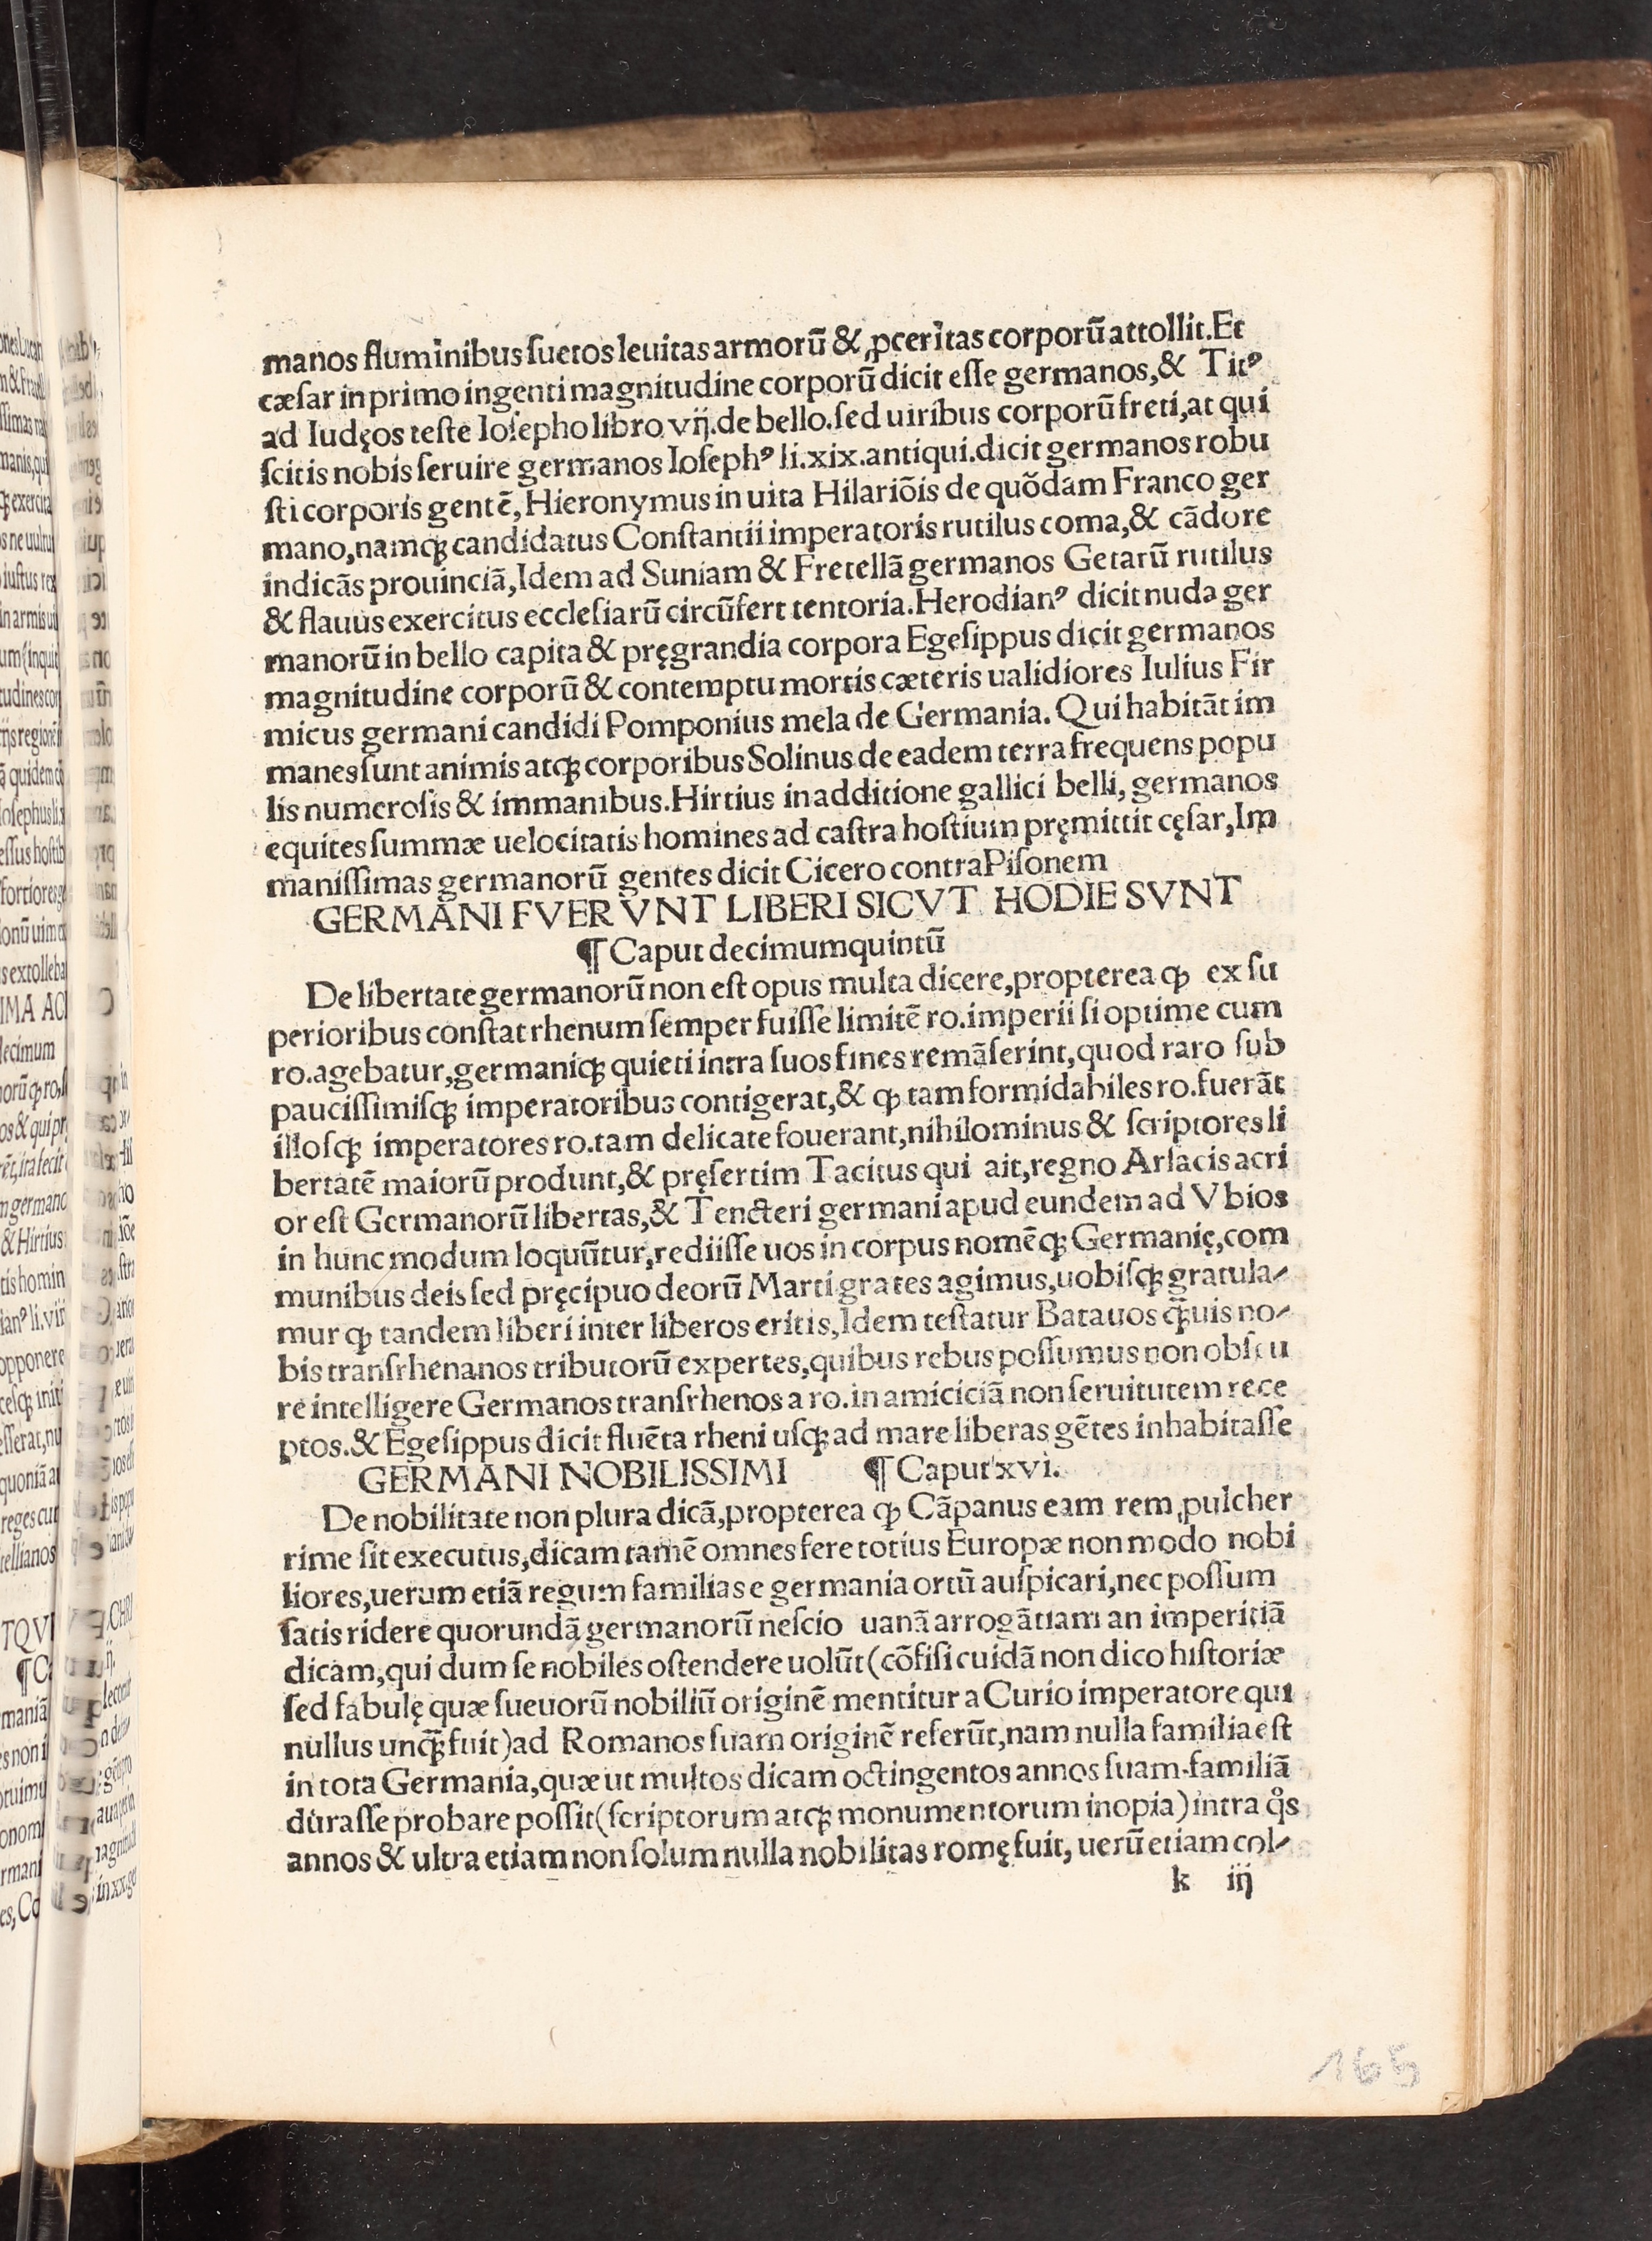 manos fluminibus ſuetos leuitas armorū & ꝓceritas corporū attollit.Et
cæſar in primo ingenti magnitudine corporū dicit eſſe germanos,& Titꝰ
ad Iudęos teſte Ioſepho libro vij.de bello.ſed uiribus corporū freti,at qui
ſcitis nobis ſeruire germanos Ioſephꝰ li.xix.antiqui.dicit germanos robu
ſti corporis gentē, Hieronymus in uita Hilariōis de quōdam Franco ger
mano,namqꝫ candidatus Conſtantii imperatoris rutilus coma,& cādore
indicās prouinciā,Idem ad Suniam & Fretellā germanos Getarū rutilus
& flauus exercitus eccleſiarū circūfert tentoria.Herodianꝰ dicit nuda ger
manorū in bello capita & pręgrandia corpora Egeſippus dicit germanos
magnitudine corporū & contemptu mortis cæteris ualidiores Iulius Fir
micus germani candidi Pomponius mela de Germania. Qui habitāt im
manes ſunt animis atqꝫ corporibus Solinus de eadem terra frequens popu
lis numeroſis & immanibus.Hirtius in additione gallici belli, germanos
equites ſummæ uelocitatis homines ad caſtra hoſtium pręmittit cęſar,Im
maniſſimas germanorū gentes dicit Cicero contra Piſonem
GERMANI FVERVNT LIBERI SICVT HODIE SVNT
¶ Caput decimumquintū
De libertate germanorū non eſt opus multa dicere,propterea ꝙ ex ſu
perioribus conſtat rhenum ſemper fuiſſe limitē ro.imperii ſi optime cum
ro.agebatur,germaniqꝫ quieti intra ſuos fines remāſerint,quod raro ſub
pauciſſimiſqꝫ imperatoribus contigerat,& ꝙ tam formidabiles ro.fuerāt
illoſqꝫ imperatores ro.tam delicate fouerant,nihilominus & ſcriptores li
bertatē maiorū produnt,& pręſertim Tacitus qui ait,regno Arſacis acri
or eſt Germanorū libertas,& Tencteri germani apud eundem ad Vbios
in hunc modum loquūtur,rediiſſe uos in corpus nomēqꝫ Germanię,com
munibus deis ſed pręcipuo deorū Marti grates agimus,uobiſqꝫ gratula⸗
mur ꝙ tandem liberi inter liberos eritis,Idem teſtatur Batauos qꝫ̄uis no⸗
bis tranſrhenanos tributorū expertes,quibus rebus poſſumus non obſcu
re intelligere Germanos tranſrhenos a ro.in amiciciā non ſeruitutem rece
ptos.& Egeſippus dicit fluēta rheni uſqꝫ ad mare liberas gētes inhabitaſſe
GERMANI NOBILISSIMI ¶ Caput xvi.
De nobilitate non plura dicā,propterea ꝙ Cāpanus eam rem pulcher
rime ſit executus,dicam tamē omnes fere totius Europæ non modo nobi
liores,uerum etiā regum familias e germania ortū auſpicari,nec poſſum
ſatis ridere quorundā germanorū neſcio uanā arrogātiam an imperitiā
dicam,qui dum ſe nobiles oſtendere uolūt (cōfiſi cuidā non dico hiſtoriæ
ſed fabulę quæ ſueuorū nobiliū originē mentitur a Curio imperatore qui
nullus unqꝫ̄ fuit)ad Romanos ſuam originē referūt,nam nulla familia eſt
in tota Germania,quæ ut multos dicam octingentos annos ſuam familiā
duraſſe probare poſſit(ſcriptorum atqꝫ monumentorum inopia)intra qͦs
annos & ultra etiam non ſolum nulla nobilitas romę fuit, uerū etiam col⸗
k iij
165